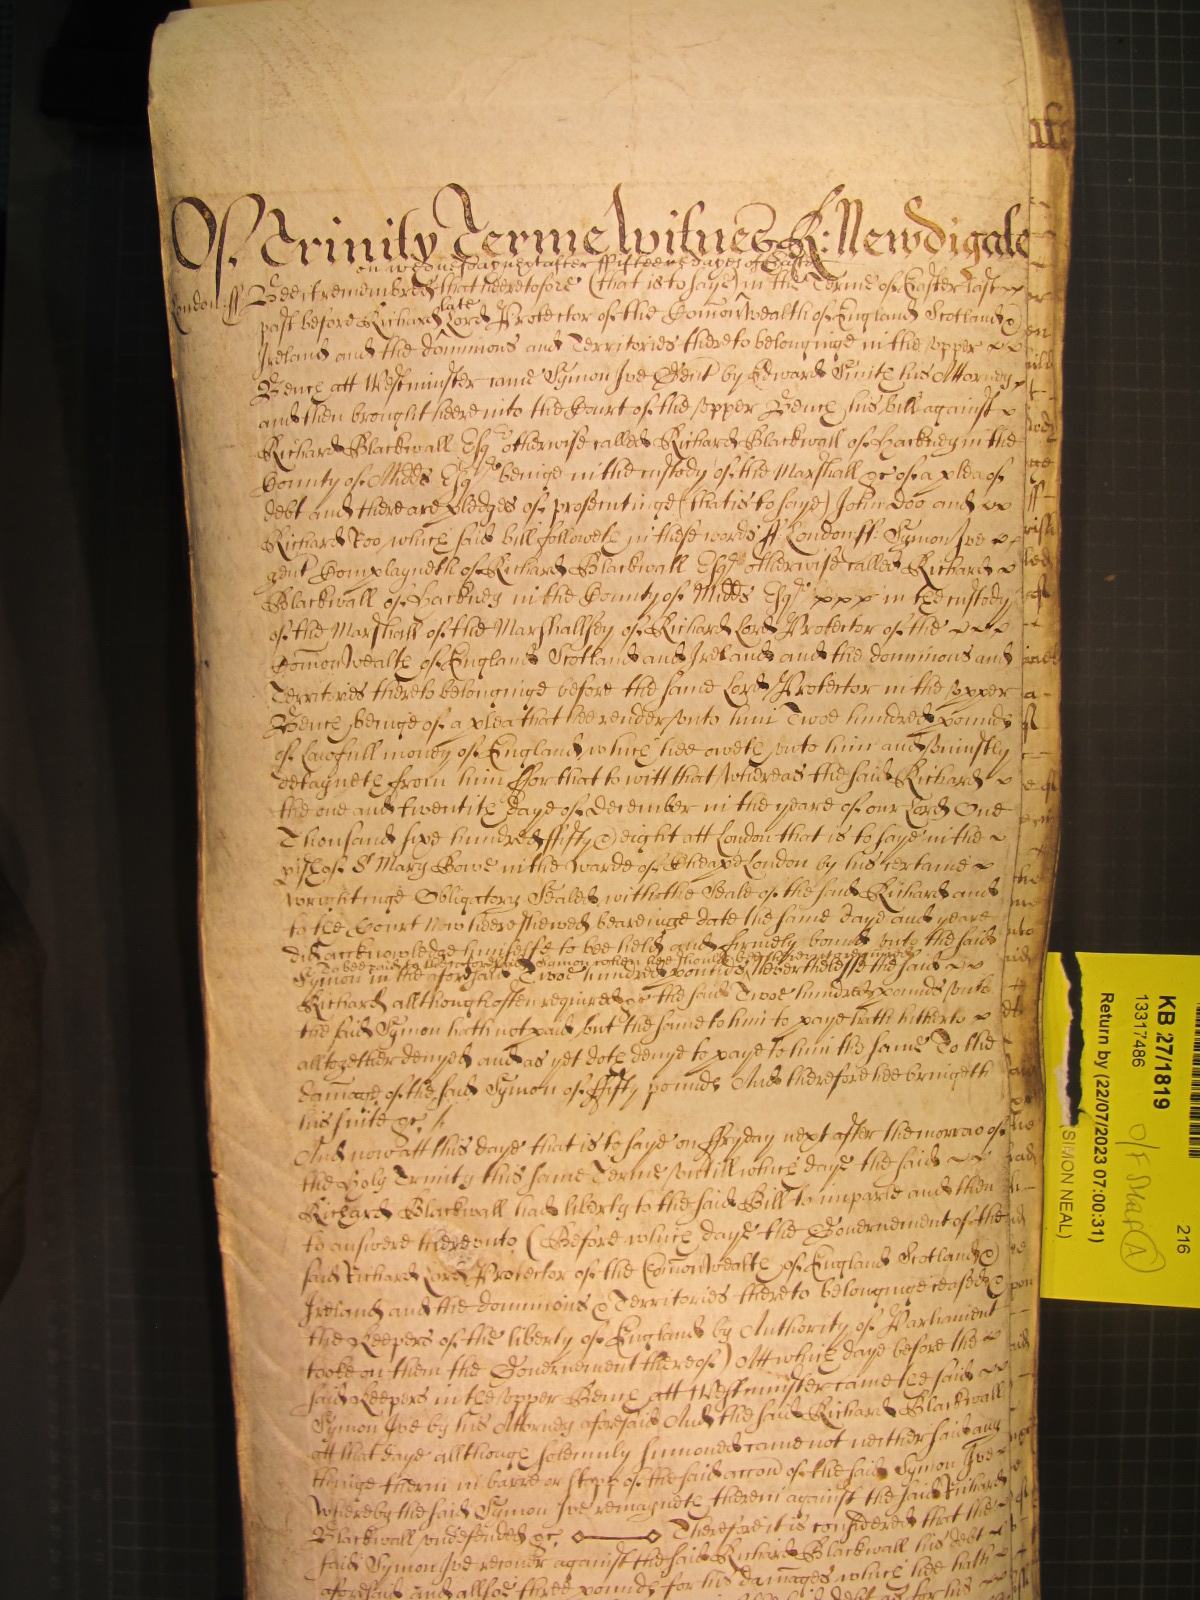 Of Trinity Terme Witnes R: Newdigate
on wednesday next after fifteene dayes of Easter
London ss Bee it remembred that heeretofore (that is to saye) in the Terme of Easter last
past before Richard late Lord Protector of the Comonwealth of England Scotland &
Ireland and the dominions and Territories thereto belonginge in the upper
Bench att Westminster came Symon Ive Gent by Edward Smith his Attorney
and then brought heere into the Court of the upper Bench his bill against
Richard Blackwall Esqr otherwise called Richard Blackwall of Hackney in the
County of Midds Esqr beinge in the custody of the Marshall &c of a plea of
debt and there are pledges of prosecutinge (that is to saye) John Doo and
Richard Roo which said bill followeth in these words ss: London ss: Symon Ive
gent Complayneth of Richard Blackwall Esqr otherwise called Richard
Blackwall of Hackney in the County of Midds Esqr in the custody
of the Marshall of the Marshallsey of Richard Lord Protector of the
Comonwealth of England Scotland and Ireland and the dominions and
Territories thereto belonginge before the same Lord Protector in the upper
Bench beinge of a plea that hee render unto him Twoe hundred pounds
of lawfull money of England which hee oweth unto him and uniustly
detayneth from him For that to witt that whereas the said Richard
the one and twentith daye of December in the yeare of our Lord One
Thousand sixe hundred fifty & eight att London that is to saye in the
pish of St Mary Bowe in the Warde of Cheape London by his certaine
wrightinge Obligatory Sealed with the Seale of the said Richard and
to the Court now heere shewed beareinge date the same daye and yeare
did acknowledge himselfe to bee held and firmely bound unto the said
to bee paid to the aforesaid Symon when hee should bee thereunto required
Symon in the aforesaid Twoe hundred pounds Neverthelesse the said
Richard allthough often required &c the said Twoe hundred pounds unto
the said Symon hath not paid but the same to him to paye hath hitherto
alltogether denyed and as yet doth denye to paye to him the same To the
damage of the said Symon of Fifty pounds And therefore hee bringeth
his suite &c
And now att this daye that is to saye on Fryday next after the morrao of
the Holy Trinity this same Terme untill which daye the said
Richard Blackwall had liberty to the said Bill to imparle and then
to answere thereunto (Before which daye the Government of the
said Richard Lord Protector of the Comonwealth of England Scotland &
Ireland and the dominions & Territories thereto belonginge ceased &
the Keepers of the liberty of England by Authority of Parliament
tooke on them the Government thereof) Att which daye before the
said Keepers in the upper Bench att Westminster came the said
Symon Ive by his Attorney aforesaid And the said Richard Blackwall
att that daye allthough solemnly sumoned came not neither said any
thinge therein in barre or stopp of the said accon of the said Symon Ive
Whereby the said Symon Ive remayneth therein against the said Richard
Blackwall undefended &c Therefore it is considered that the
said Symon Ive recover against the said Richard Blackwall his debt
aforesaid and allsoe three pounds for his damages which hee hath
debt as for his
KB 27/1819
13317486
O/F Shelf A
Return by (22/07/2023 07:00:31)
SIMON NEAL)
216